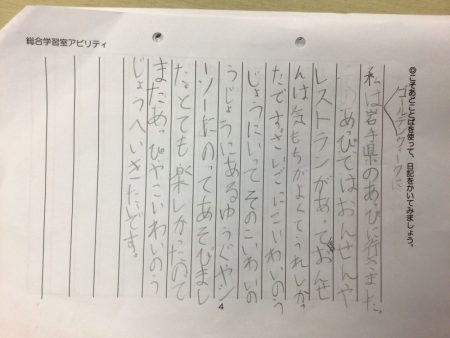 総合学習室アビリティ
◎こそあどことばを使って、日記をかいてみましょう。
ゴールデンウィークに
私は岩手県のあっぴに行きました。
あっぴではおんせんや
レストランがあっておんせ
んは気もちがよくてうれしかっ
たです。さいごにこいわいのう
じょうにいってそのこいわいの
うじょうにあるゆうぐやシ
ーソーにのってあそびまし
たとても楽しかったので
またあっぴやこいわいのう
じょうへいきたいです。
4